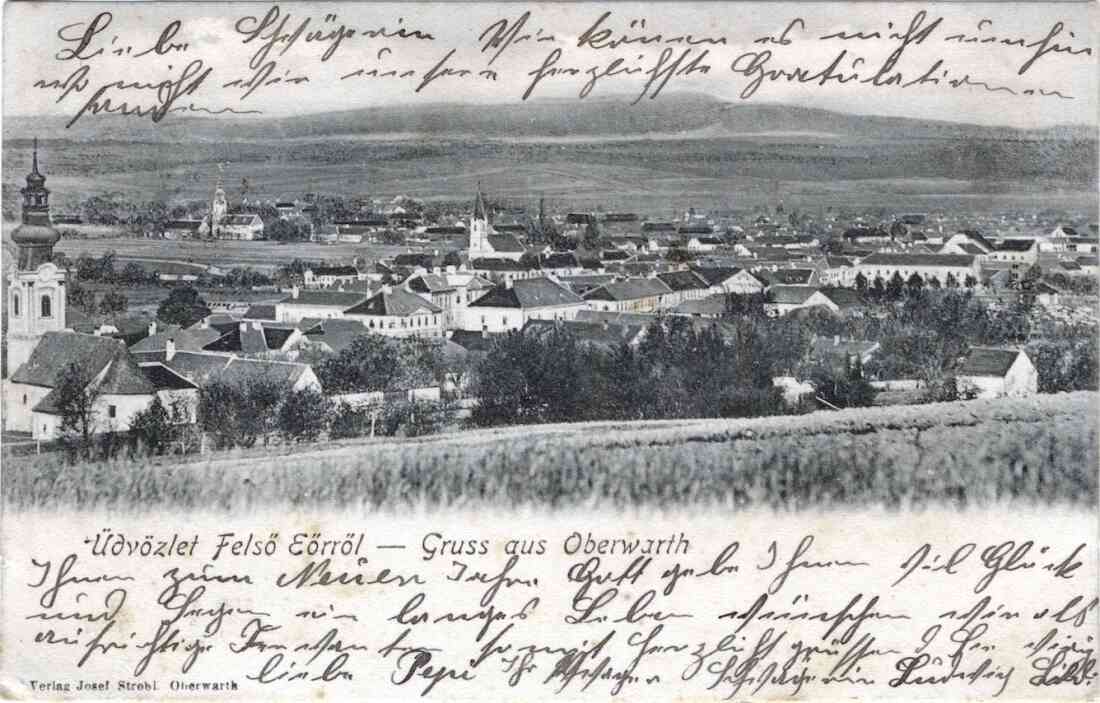 Liebe Schwägerin Wir könen es nicht umhin
wo nicht wir unsere herzlichste Gratulationen
senden
Üdvözlet Felső Eőrről — Gruss aus Oberwarth
Ihnen zum Neuen Jahre Gott gebe Ihnen vil Glück
und Segen ein langes Leben wünschen wir als
aufrichtige somit herzlich grüssen Sie
liebe Pepi Ihr Schwager Schwägerin Ludwich
Verlag Josef Strobl Oberwarth